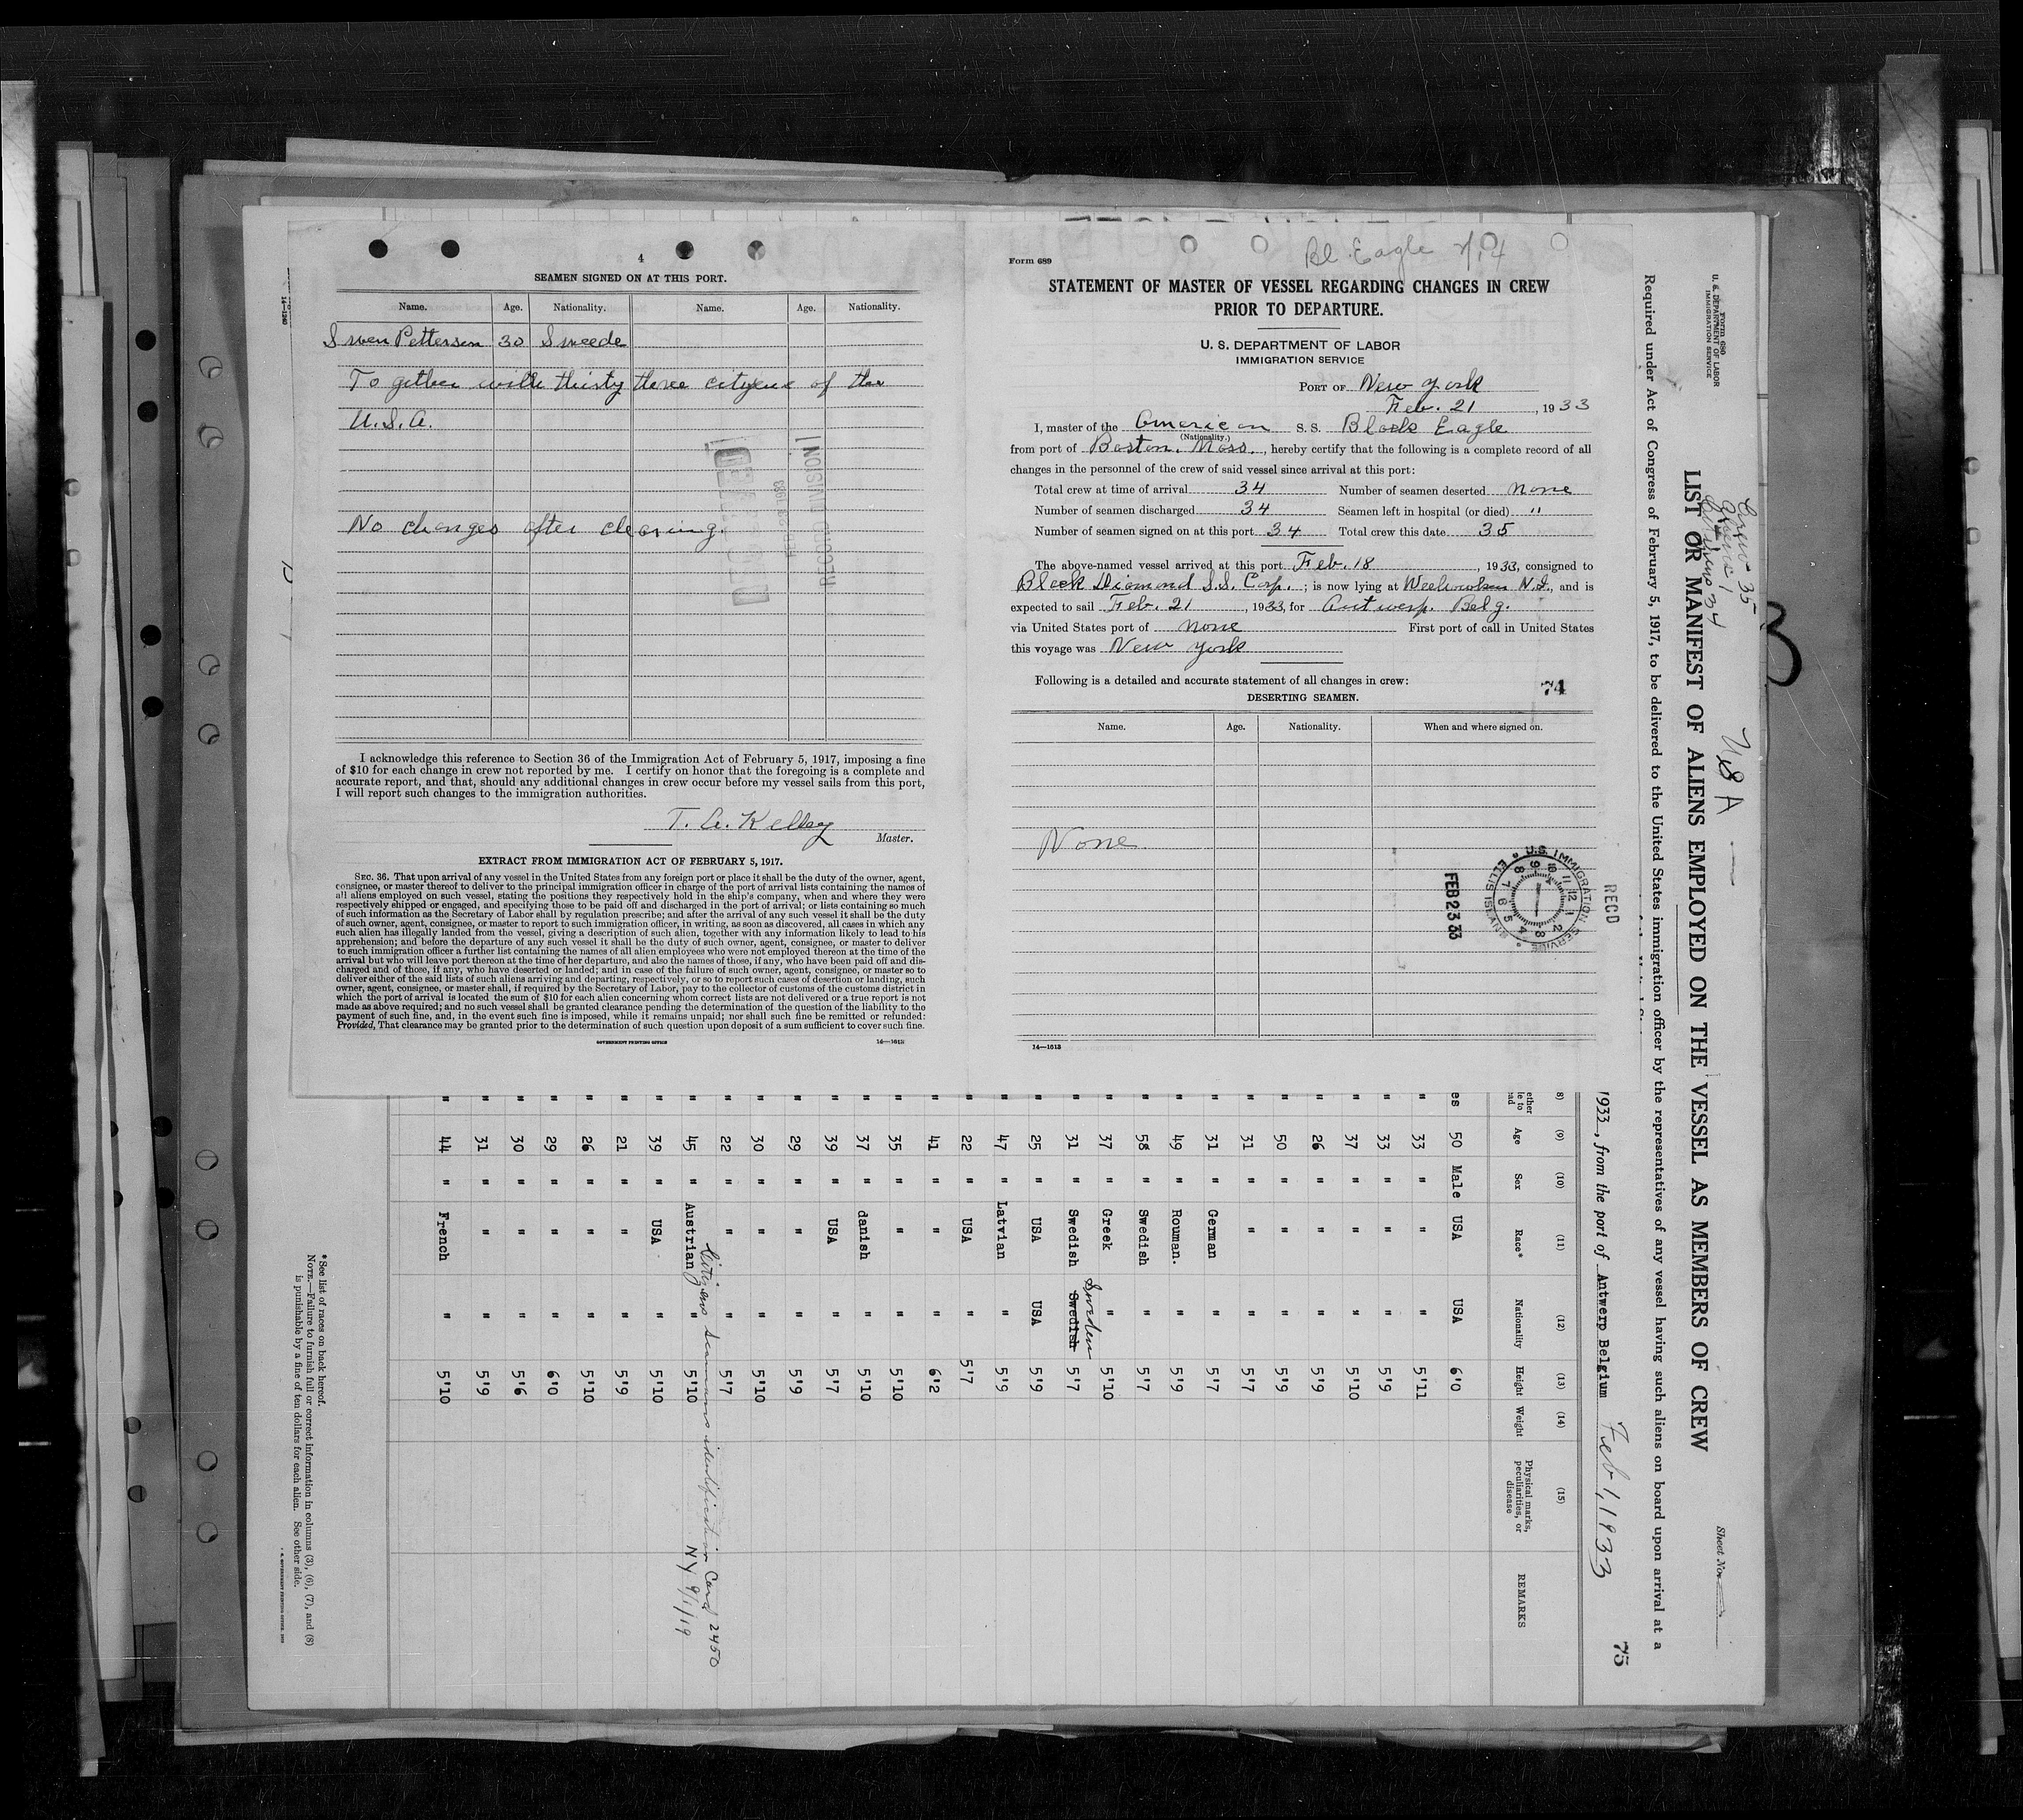 4
SEAMEN SIGNED ON AT THIS PORT.
Name. Age. Nationality. Name. Age. Nationality.
Swen Petterson 30 Sweede
Together with thirty three citizens of the
U.S.A.
No changes after clearing.
RECORD DIVISION
I acknowledge this reference to Section 36 of the Immigration Act of February 5, 1917, imposing a fine
of $10 for each change in crew not reported by me. I certify on honor that the foregoing is a complete and
accurate report, and that, should any additional changes in crew occur before my vessel sails from this port,
I will report such changes to the immigration authorities.
T. A. Kelley
Master.
EXTRACT FROM IMMIGRATION ACT OF FEBRUARY 5, 1917.
SEC. 36. That upon arrival of any vessel in the United States from any foreign port or place it shall be the duty of the owner, agent,
consignee, or master thereof to deliver to the principal immigration officer in charge of the port of arrival lists containing the names of
all aliens employed on such vessel, stating the positions they respectively hold in the ship's company, when and where they were
respectively shipped or engaged, and specifying those to be paid off and discharged in the port of arrival; or lists containing so much
of such information as the Secretary of Labor shall by regulation prescribe; and after the arrival of any such vessel it shall be the duty
of such owner, agent, consignee, or master to report to such immigration officer, in writing, as soon as discovered, all cases in which any
such alien has illegally landed from the vessel, giving a description of such alien, together with any information likely to lead to his
apprehension; and before the departure of any such vessel it shall be the duty of such owner, agent, consignee, or master to deliver
to such immigration officer a further list containing the names of all alien employees who were not employed thereon at the time of the
arrival but who will leave port thereon at the time of her departure, and also the names of those, if any, who have been paid off and dis-
charged and of those, if any, who have deserted or landed; and in case of the failure of such owner, agent, consignee, or master so to
deliver either of the said lists of such aliens arriving and departing, respectively, or so to report such cases of desertion or landing, such
owner, agent, consignee, or master shall, if required by the Secretary of Labor, pay to the collector of customs of the customs district in
which the port of arrival is located the sum of $10 for each alien concerning whom correct lists are not delivered or a true report is not
made as above required; and no such vessel shall be granted clearance pending the determination of the question of the liability to the
payment of such fine, and, in the event such fine is imposed, while it remains unpaid; nor shall such fine be remitted or refunded:
Provided, That clearance may be granted prior to the determination of such question upon deposit of a sum sufficient to cover such fine.
GOVERNMENT PRINTING OFFICE 14—1613
Bl. Eagle
Form 689
STATEMENT OF MASTER OF VESSEL REGARDING CHANGES IN CREW
PRIOR TO DEPARTURE.
U. S. DEPARTMENT OF LABOR
IMMIGRATION SERVICE
PORT OF New York
Feb. 21, 1933
I, master of the American S. S. Black Eagle
(Nationality.)
from port of Boston, Mass., hereby certify that the following is a complete record of all
changes in the personnel of the crew of said vessel since arrival at this port:
Total crew at time of arrival 34 Number of seamen deserted none
Number of seamen discharged 34 Seamen left in hospital (or died) "
Number of seamen signed on at this port 34 Total crew this date 35
The above-named vessel arrived at this port Feb. 18, 1933, consigned to
Black Diamond S.S. Corp.; is now lying at Weehawken N.J., and is
expected to sail Feb. 21, 1933, for Antwerp. Belg.
via United States port of none First port of call in United States
this voyage was New York
Following is a detailed and accurate statement of all changes in crew:
74
DESERTING SEAMEN.
Name. Age. Nationality. When and where signed on.
None
RECD
U.S. IMMIGRATION SERVICE ELLIS ISLAND
FEB 23 33
14—1613
Form 680
U. S. DEPARTMENT OF LABOR
IMMIGRATION SERVICE
Sheet No.
USA
LIST OR MANIFEST OF ALIENS EMPLOYED ON THE VESSEL AS MEMBERS OF CREW
Required under Act of Congress of February 5, 1917, to be delivered to the United States immigration officer by the representatives of any vessel having such aliens on board upon arrival at a
1933, from the port of Antwerp Belgium Feb 1, 1933
75
(9) (10) (11) (12) (13) (14) (15)
Age Sex Race* Nationality Height Weight Physical marks, peculiarities, or disease REMARKS
es 50 Male USA USA 6'0
" 33 " " " 5'11
" 33 " " " 5'9
" 37 " " " 5'10
" 26 " " " 5'9
" 50 " " " 5'9
" 31 " " " 5'7
" 31 " German " 5'7
" 49 " Rouman. " 5'9
" 58 " Swedish " 5'7
" 37 " Greek " 5'10
" 31 " Swedish Swedish Sweden 5'7
" 25 " USA USA 5'9
" 47 " Latvian " 5'9
" 22 " USA " 5'7
" 41 " " " 6'2
" 35 " " " 5'10
" 37 " danish " 5'10
" 39 " USA " 5'7
" 29 " " " 5'9
" 30 " " " 5'10
" 22 " " " 5'7
Citizens Seamans identification Card 2450
" 45 " Austrian " 5'10 NY 9/1/19
" 39 " USA " 5'10
" 21 " " " 5'9
" 26 " " " 5'10
" 29 " " " 6'0
" 30 " " " 5'6
" 31 " " " 5'9
" 44 " French " 5'10
*See list of races on back hereof.
NOTE.—Failure to furnish full or correct information in columns (3), (6), (7), and (8)
is punishable by a fine of ten dollars for each alien. See other side.